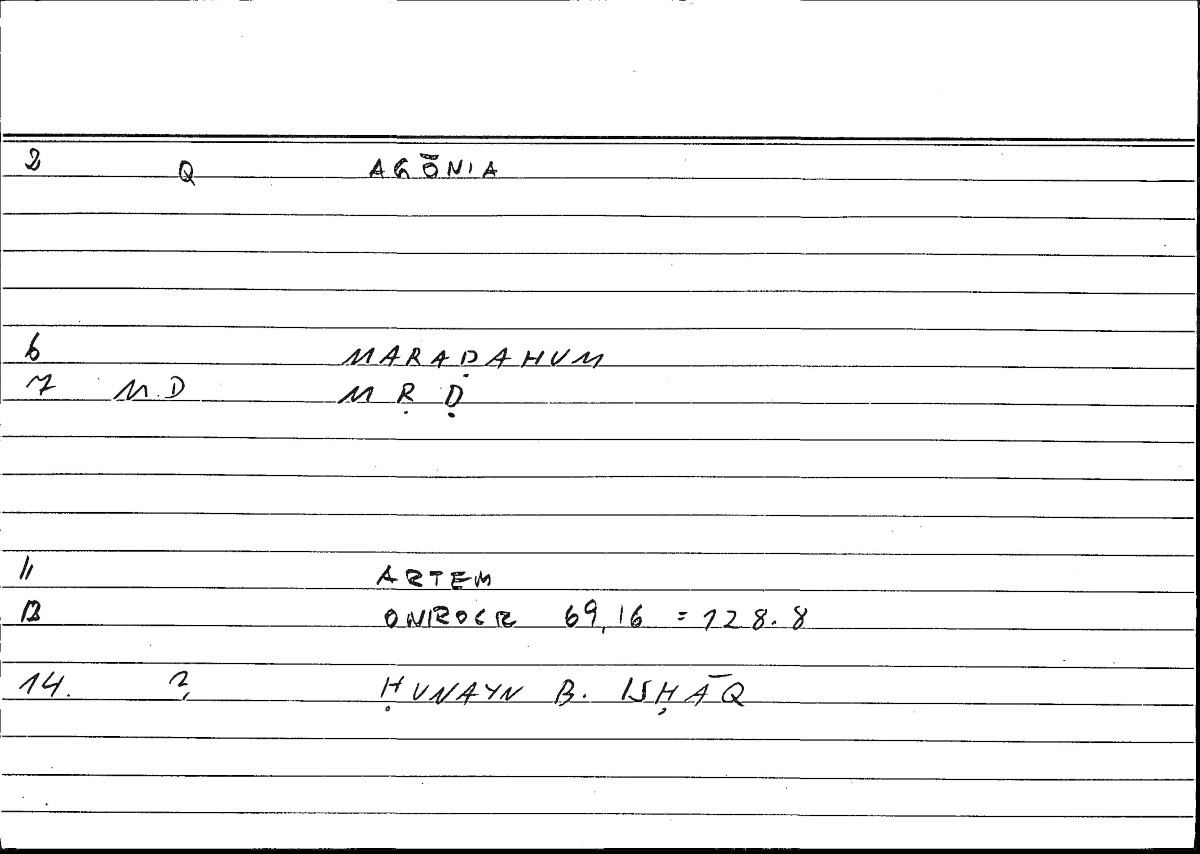 2 Q AGŌNIA
6 MARAḌAHUM
7 M.D M Ṛ Ḍ
11 ARTEM
13 ONIROCR 69,16 = 128.8
14. ? ḤUNAYN B. ISḤĀQ